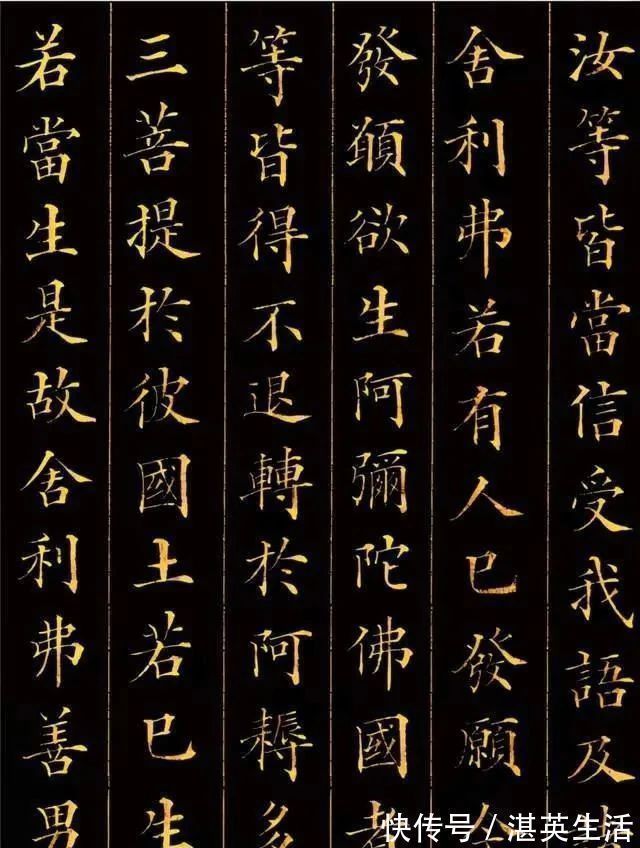 汝等皆當信受我語及
舍利弗若有人已發願
發願欲生阿彌陀佛國者
等皆得不退轉於阿耨多
三菩提於彼國土若已生
若當生是故舍利弗善男
快传号／湛英生活